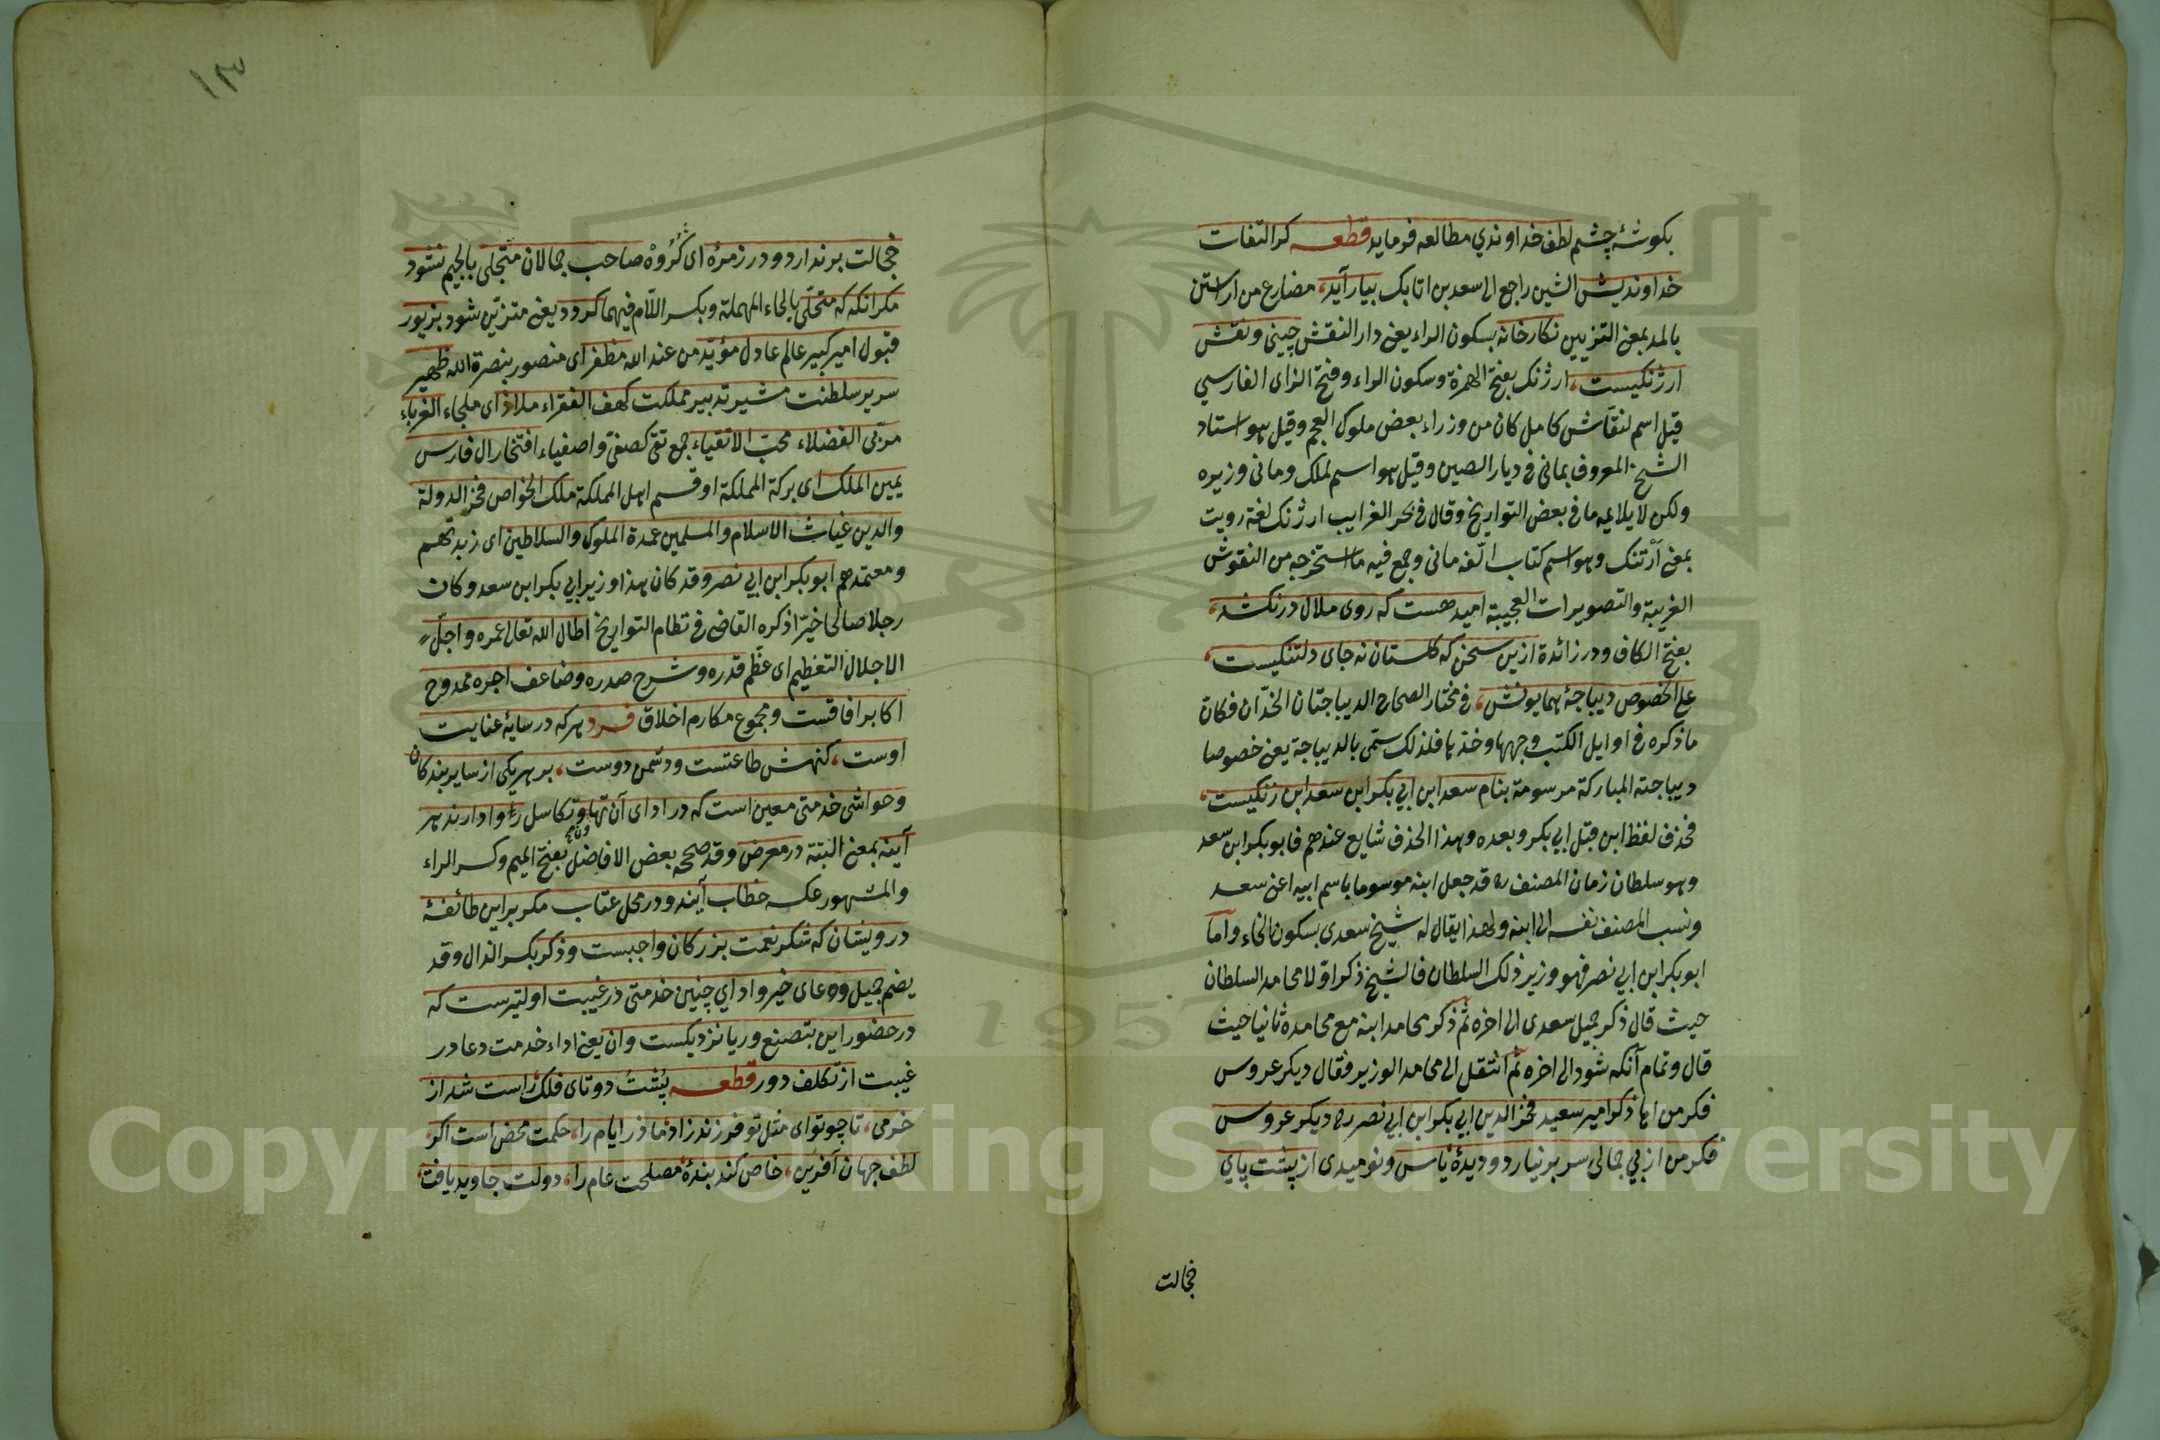 بكوشهٔ چشم لطف خداوندي مطالعه فرمايد قطعه كر التفات
خداونديش الشين راجع الى سعد بن اتابك بيارآيد، مضارع من اراستن
بالمد بمعنى التزيين نكارخانه بسكون الراء يعنى دار النقش چينى ونقش
ارژنكيست، ارژنك بفتح الهمزة وسكون الراء وفتح الزاى الفارسي
قيل اسم لنقّاش كامل كان من وزراء بعض ملوك العجم وقيل هو استاد
الشيخ المعروف بمانى فى ديار الصين وقيل هو اسم لملك ومانى وزيره
ولكن لا يلايمه ما فى بعض التواريخ وقال فى بحر الغرايب ارژنك لغة رويت
بمعنى ارتنك وهو اسم كتاب الّفه مانى وجمع فيه ما استخرجه من النقوش
الغريبة والتصويرات العجيبة اميد هست كه روى ملال در نكشد،
بفتح الكاف ودر زائدة ازين سخن كه كلستان نه جاى دلتنكيست،
على الخصوص ديباجهٔ همايونش، فى مختار الصحاح الديباجتان الخدّان فكان
ما ذكره فى اوايل الكتب وجهها وخدّها فلذلك سمّى بالديباجة يعنى خصوصا
ديباجته المباركة مرسومة بنام سعد ابن ابي بكر ابن سعد ابن زنكيست،
فحذف لفظ ابن قبل ابي بكر وبعده وهذا الحذف شايع عندهم فابو بكر ابن سعد
وهو سلطان زمان المصنف ره قد جعل ابنه موسوما باسم ابيه اعنى سعد
ونسب المصنف نفسه الى ابنه ولهذا يقال له شيخ سعدى بسكون الخاء وامّا
ابو بكر ابن ابي نصر فهو وزير ذلك السلطان فالشيخ ذكر اوّلا محامد السلطان
حيث قال ذكر جميل سعدى الى اخره ثم ذكر محامد ابنه مع محامده ثانيا حيث
قال وتمام آنكه شود الى اخره ثم انتقل الى محامد الوزير فقال ديكر عروس
فكر من ايها ذكر امير سعيد فخر الدين ابي بكر ابن ابي نصر ره ديكر عروس
فكر من از بي جمالى سر بر نيارد وديدهٔ ياس ونوميدى از پشت پاي
خجالت
١٣
خجالت بر ندارد ودر زمرهٔ اى كُرُوهْ صاحب جمالان متجلى بالجيم نشود
مكر انكه كه متحلّى بالحاء المهملة وبكسر اللّام فيهما كردد يعنى متزيّن شود بزيور
قبول امير كبير عالم عادل مؤيّد من عند الله مظفر اى منصور بنصرة الله ظهير
سرير سلطنت مشير تدبير مملكت كهف الفقراء ملاذ اى ملجاء الغرباء
مربّى الفضلاء محبّ الاتقياء جمع تقى كصفى واصفياء افتخار ال فارس
يمين الملك اى بركة المملكة او قسم اهل المملكة ملك الخواص فخر الدولة
والدين غياث الاسلام والمسلمين عمدة الملوك والسلاطين اى زبدتهم
ومعتمدهم ابو بكر ابن ابي نصر وقد كان هذا وزير ابي بكر ابن سعد وكان
رجلا صالحا خيّرا ذكره القاضى فى نظام التواريخ اطال الله تعالى عمره واجلّ
الاجلال التعظيم اى عظّم قدره وشرح صدره وضاعف اجره ممدوح
اكابر افاقست ومجموع مكارم اخلاق فرد هر كه در سايهٔ عنايت
اوست، كنهش طاعتست ودشمن دوست، بر هر يكى از ساير بندكان
وحواشى خدمتى معين است كه در اداى آن تهاون وتكاسل روا دارند هر
آينه بمعنى البتة در معرض وقد صححه بعض الافاضل بفتح الميم وكسر الراء
والمشهور عكسه خطاب آيند ودر محل عتاب مكر بر اين طائفهٔ
درويشان كه شكر نعمت بزركان واجبست وذكر بكسر الذال وقد
يضم جميل ودعاى خير واداي چنين خدمتى در غيبت اوليترست كه
در حضور اين بتصنع وريا نزديكست وان يعنى اداء خدمت دعا در
غيبت از تكلف دور قطعه پُشْتُ دوتاى فلك راست شد از
خرمى، تا چو تو اى مثل تو فرزند زاد مادر ايام را، حكمت محض است اكر
لطف جهان آفرين، خاص كند بندهٔ مصلحت عام را، دولت جاويد يافت،
Copyright © King Saud University
1957